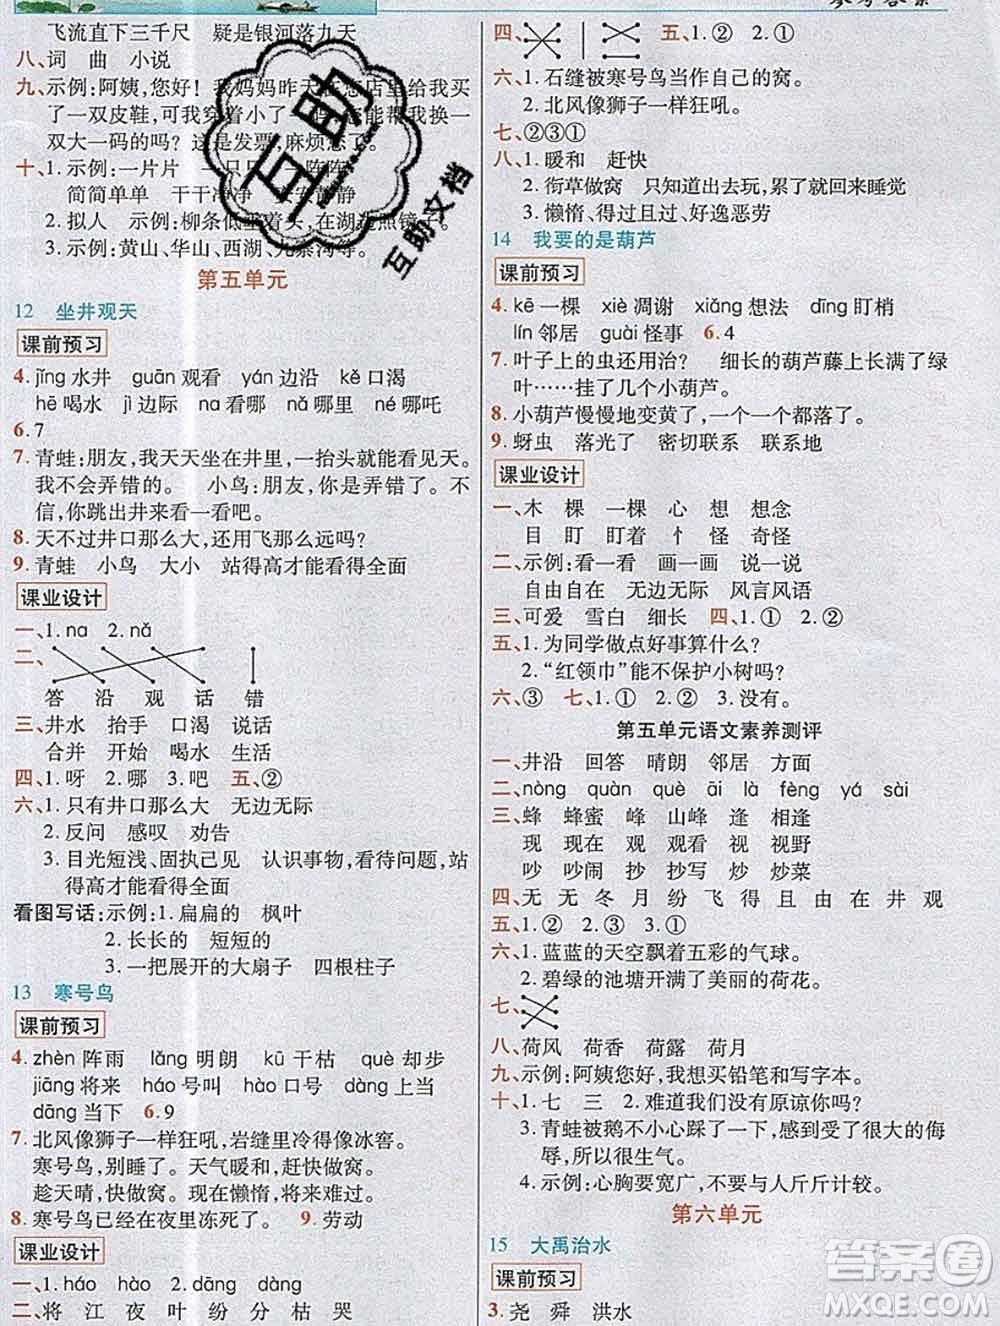 飞流直下三千尺 疑是银河落九天
八、词 曲 小说
九、示例:阿姨,您好! 我妈妈昨天在您店里买了一
双皮鞋,可我穿着小了 能帮我换一
双大一码的吗? 这是发票,麻烦您了。
十、1. 示例:一片片 一只只 一阵阵
简简单单 干干净净 安安静静
2. 拟人 示例:柳条低垂着头,在湖边照镜
3. 示例:黄山、华山、西湖、九寨沟等。
第五单元
12 坐井观天
课前预习
4. jǐng 水井 guān 观看 yán 边沿 kě 口渴
hē 喝水 jì 边际 na 看哪 nǎ 哪里 né 哪吒
6. 7
7. 青蛙:朋友,我天天坐在井里,一抬头就能看见天。
我不会弄错的。 小鸟:朋友,你是弄错了。不
信,你跳出井来看一看吧。
8. 天不过井口那么大,还用飞那么远吗?
9. 青蛙 小鸟 大小 站得高才能看得全面
课业设计
一、1. na 2. nǎ
二、
答 沿 观 话 错
三、井水 抬手 口渴 说话
合并 开始 喝水 生活
四、1. 呀 2. 哪 3. 吧 五、②
六、1. 只有井口那么大 无边无际
2. 反问 感叹 劝告
3. 目光短浅、固执己见 认识事物,看待问题,站
得高才能看得全面
看图写话:示例:1. 扁扁的 枫叶
2. 长长的 短短的
3. 一把展开的大扇子 四根柱子
13 寒号鸟
课前预习
4. zhèn 阵雨 lǎng 明朗 kū 干枯 què 却步
jiāng 将来 háo 号叫 hào 口号 dàng 上当
dāng 当下 6. 9
7. 北风像狮子一样狂吼,岩缝里冷得像冰窖。
寒号鸟,别睡了。天气暖和,赶快做窝。
趁天晴,快做窝。现在懒惰,将来难过。
8. 寒号鸟已经在夜里冻死了。 9. 劳动
课业设计
一、1. háo hào 2. dāng dàng
二、将 江 夜 叶 纷 分 枯 哭
四、 五、1. ② 2. ①
六、1. 石缝被寒号鸟当作自己的窝。
2. 北风像狮子一样狂吼。
七、②③①
八、1. 暖和 赶快
2. 衔草做窝 只知道出去玩,累了就回来睡觉
3. 懒惰、得过且过、好逸恶劳
14 我要的是葫芦
课前预习
4. kē 一棵 xiè 凋谢 xiǎng 想法 dīng 盯梢
lín 邻居 guài 怪事 6. 4
7. 叶子上的虫还用治? 细长的葫芦藤上长满了绿
叶……挂了几个小葫芦。
8. 小葫芦慢慢地变黄了,一个一个都落了。
9. 蚜虫 落光了 密切联系 联系地
课业设计
一、木 棵 一棵 心 想 想念
目 盯 盯着 忄 怪 奇怪
二、示例:看一看 画一画 说一说
自由自在 无边无际 风言风语
三、可爱 雪白 细长 四、1. ① 2. ②
五、1. 为同学做点好事算什么?
2. “红领巾”能不保护小树吗?
六、③ 七、1. ① 2. ② 3. 没有。
第五单元语文素养测评
一、井沿 回答 晴朗 邻居 方面
二、nòng quàn què āi là fèng yá sài
三、蜂 蜂蜜 峰 山峰 逢 相逢
现 现在 观 观看 视 视野
吵 吵闹 抄 抄写 炒 炒菜
四、无 无 冬 月 纷 飞 得 且 由 在 井 观
五、1. ① 2. ②
六、1. 蓝蓝的天空飘着五彩的气球。
2. 碧绿的池塘开满了美丽的荷花。
七、
八、荷风 荷香 荷露 荷月
九、示例:阿姨您好,我想买铅笔和写字本。
十、1. 七 三 2. 难道我们没有原谅你吗?
3. 青蛙被鹅不小心踩了一下,感到受了很大的侮
辱,所以很生气。
4. 示例:心胸要宽广,不要与人斤斤计较。
第六单元
15 大禹治水
课前预习
3. 尧 舜 洪水
互助
互助文档
答案圈
MXQE.COM